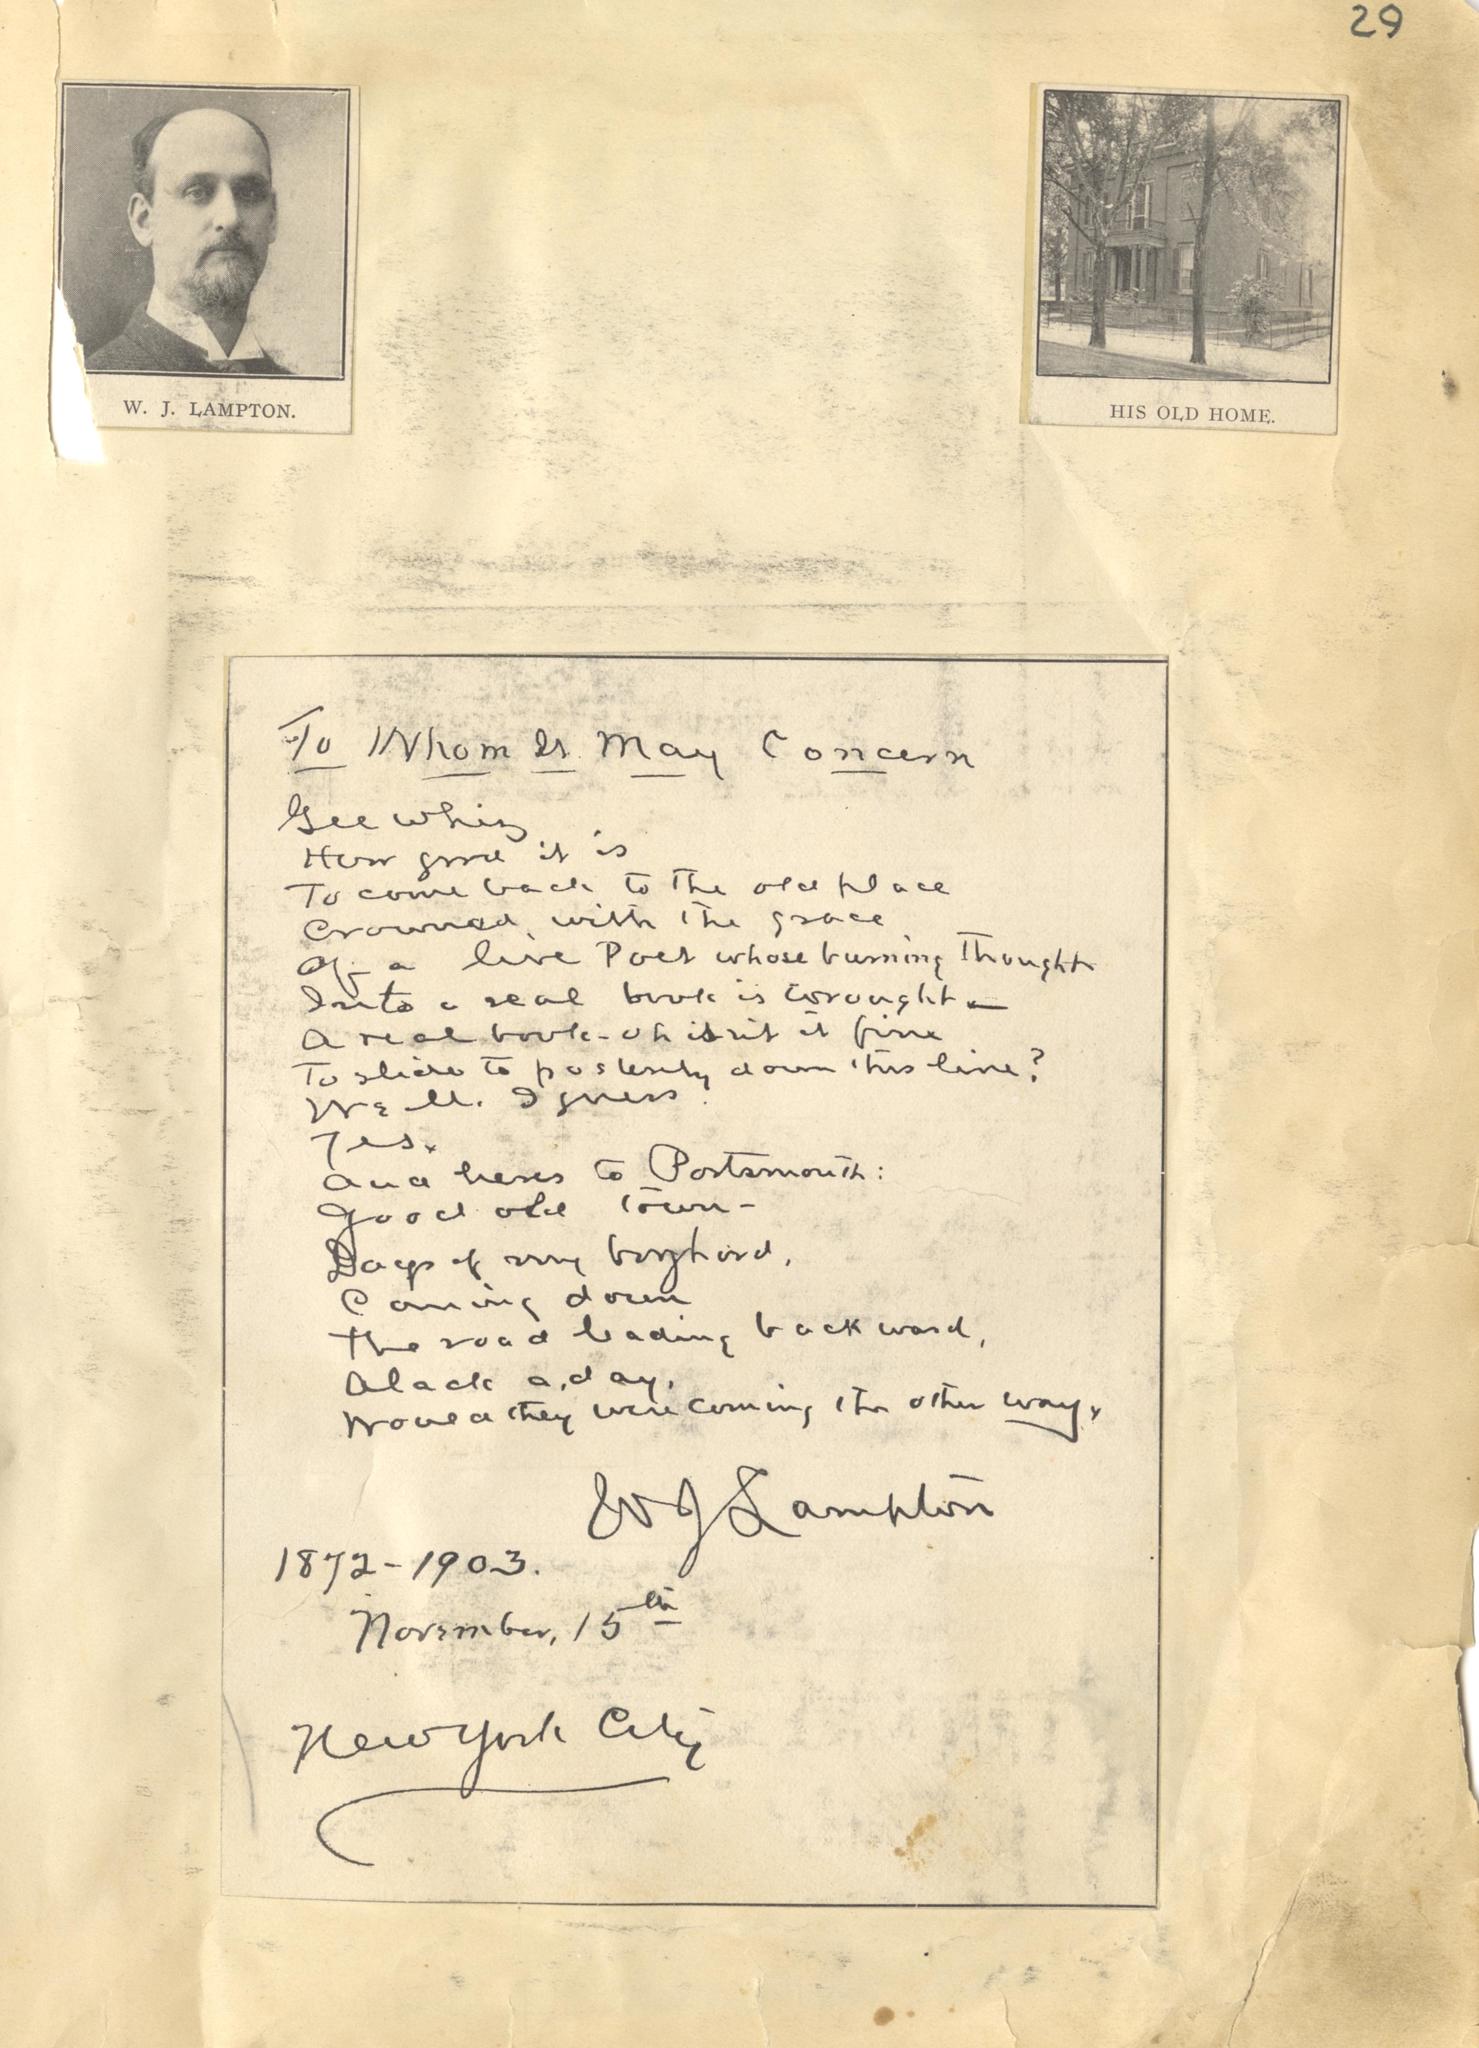 29
W. J. LAMPTON.
HIS OLD HOME.
To Whom It May Concern
Gee whiz
How good it is
To come back to the old place
Crowned with the grace
Of a live Poet whose burning thought
Into a real book is wrought —
A real book - oh isn't it fine
To slide to posterity down this line?
Well. I guess.
Yes.
And heres to Portsmouth:
Good old Town -
Days of my boyhood,
Coming down
The road leading backward,
Alack a day,
Would they were coming the other way.
W J Lampton
1872 - 1903.
November, 15th
New York City